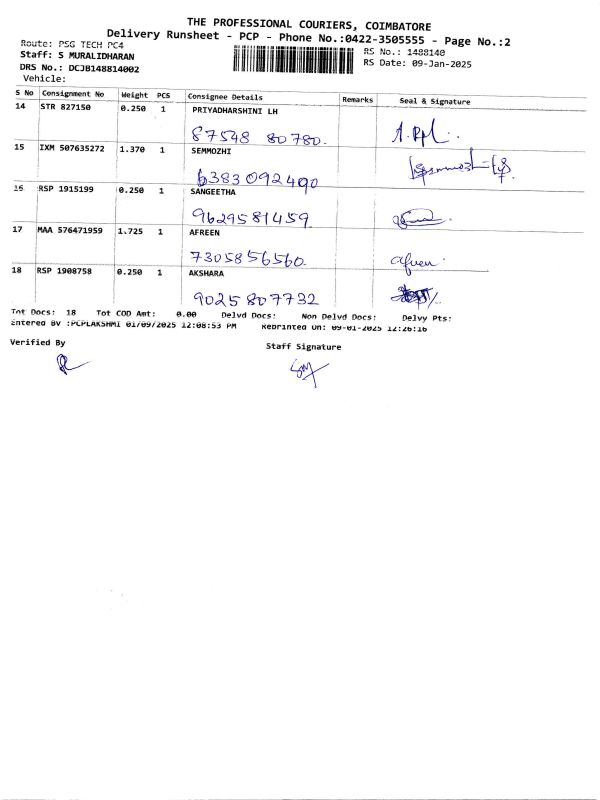 THE PROFESSIONAL COURIERS, COIMBATORE
Delivery Runsheet - PCP - Phone No.:0422-3505555 - Page No.:2
Route: PSG TECH PC4
Staff: S MURALIDHARAN
DRS No.: DCJB148814002
Vehicle:
RS No.: 1488140
RS Date: 09-Jan-2025
S No Consignment No Weight PCS Consignee Details Remarks Seal & Signature
14 STR 827150 0.250 1 PRIYADHARSHINI LH
87548 80780.
15 IXM 507635272 1.370 1 SEMMOZHI
6383092490
16 RSP 1915199 0.250 1 SANGEETHA
9629581459
17 MAA 576471959 1.725 1 AFREEN
7305856560 afreen
18 RSP 1908758 0.250 1 AKSHARA
9025807732
Tot Docs: 18 Tot COD Amt: 0.00 Delvd Docs: Non Delvd Docs: Delvy Pts:
Entered By :PCPLAKSHMI 01/09/2025 12:08:53 PM Reprinted On: 09-01-2025 12:26:16
Verified By
Staff Signature